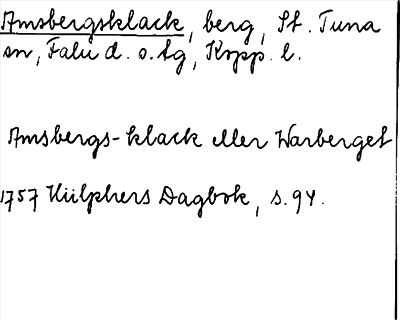 Amsbergsklack, berg, St. Tuna
sn, Falu d. s. tg, Kopp. l.
Amsbergs-klack eller Warberget
1757 Hülphers Dagbok, s. 94.